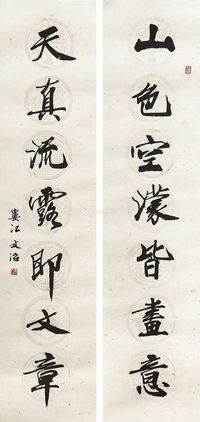 山色空濛皆畫意
天真流露即文章
婁江文治